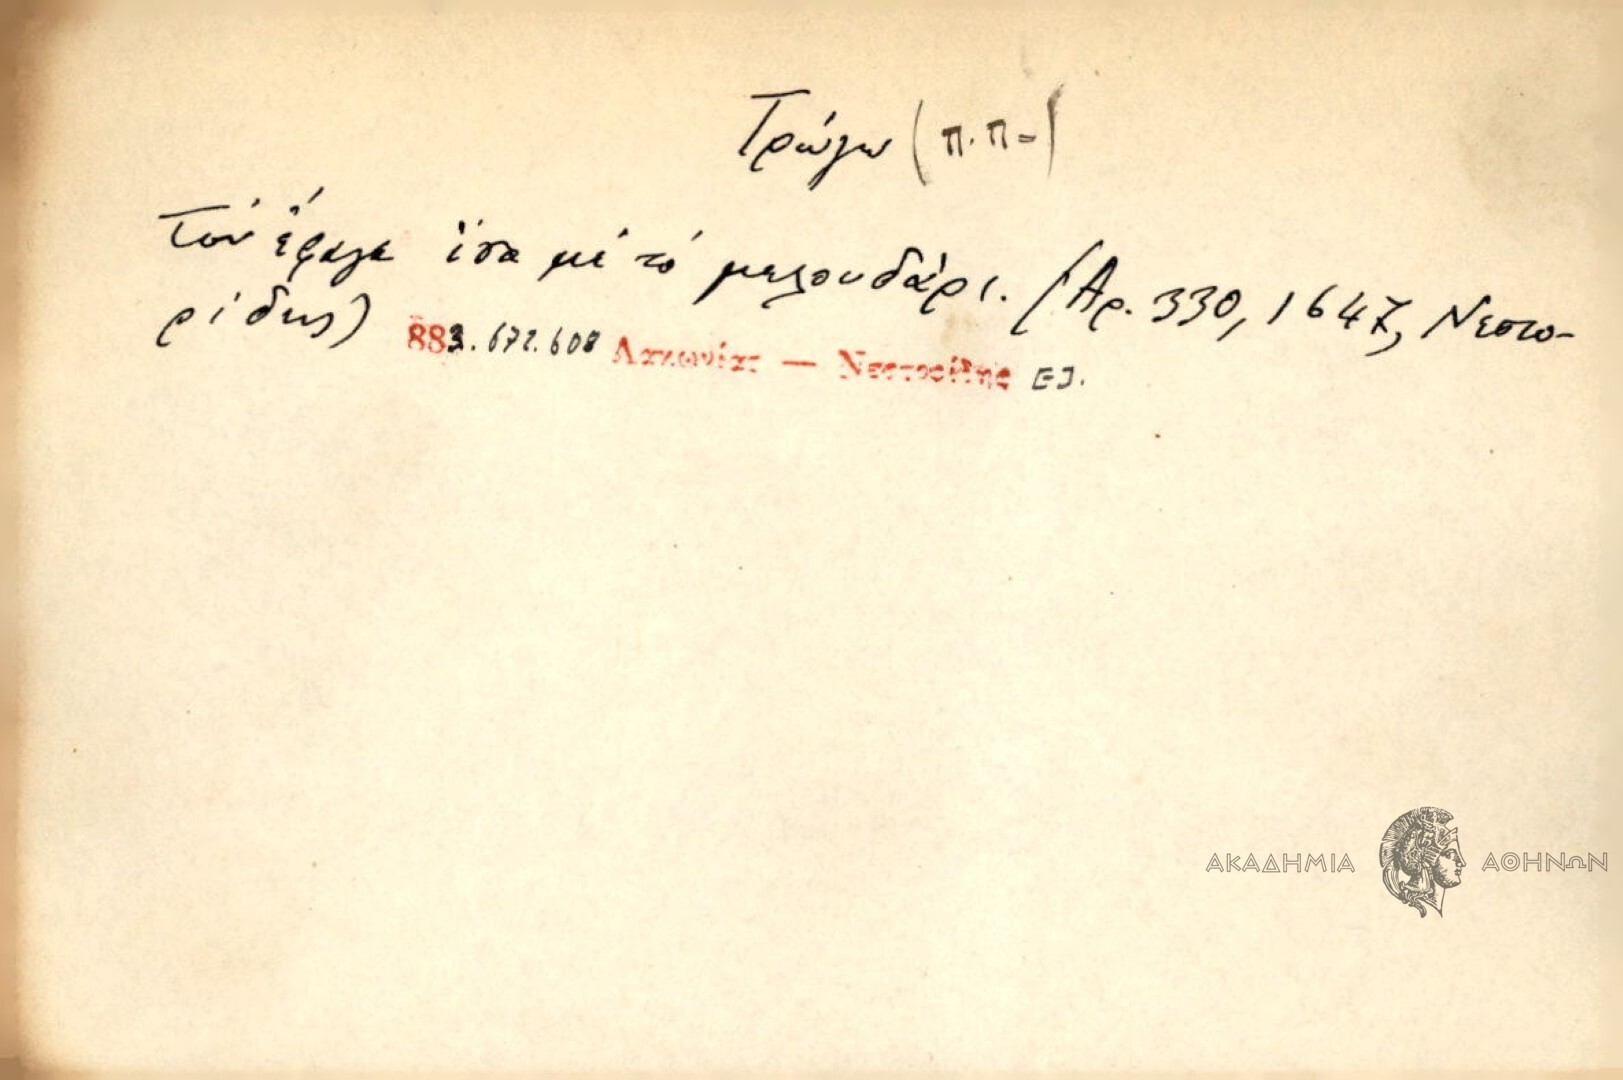 Τρώγω (π.π.)
Τὸν ἔφαγα ἴσα μὲ τὸ μελουδάρι. (Ἀρ. 330, 1647, Νεστο-
ρίδης)
883.672.608 Λακωνίας — Νεστορίδης
ΑΚΑΔΗΜΙΑ ΑΘΗΝΩΝ